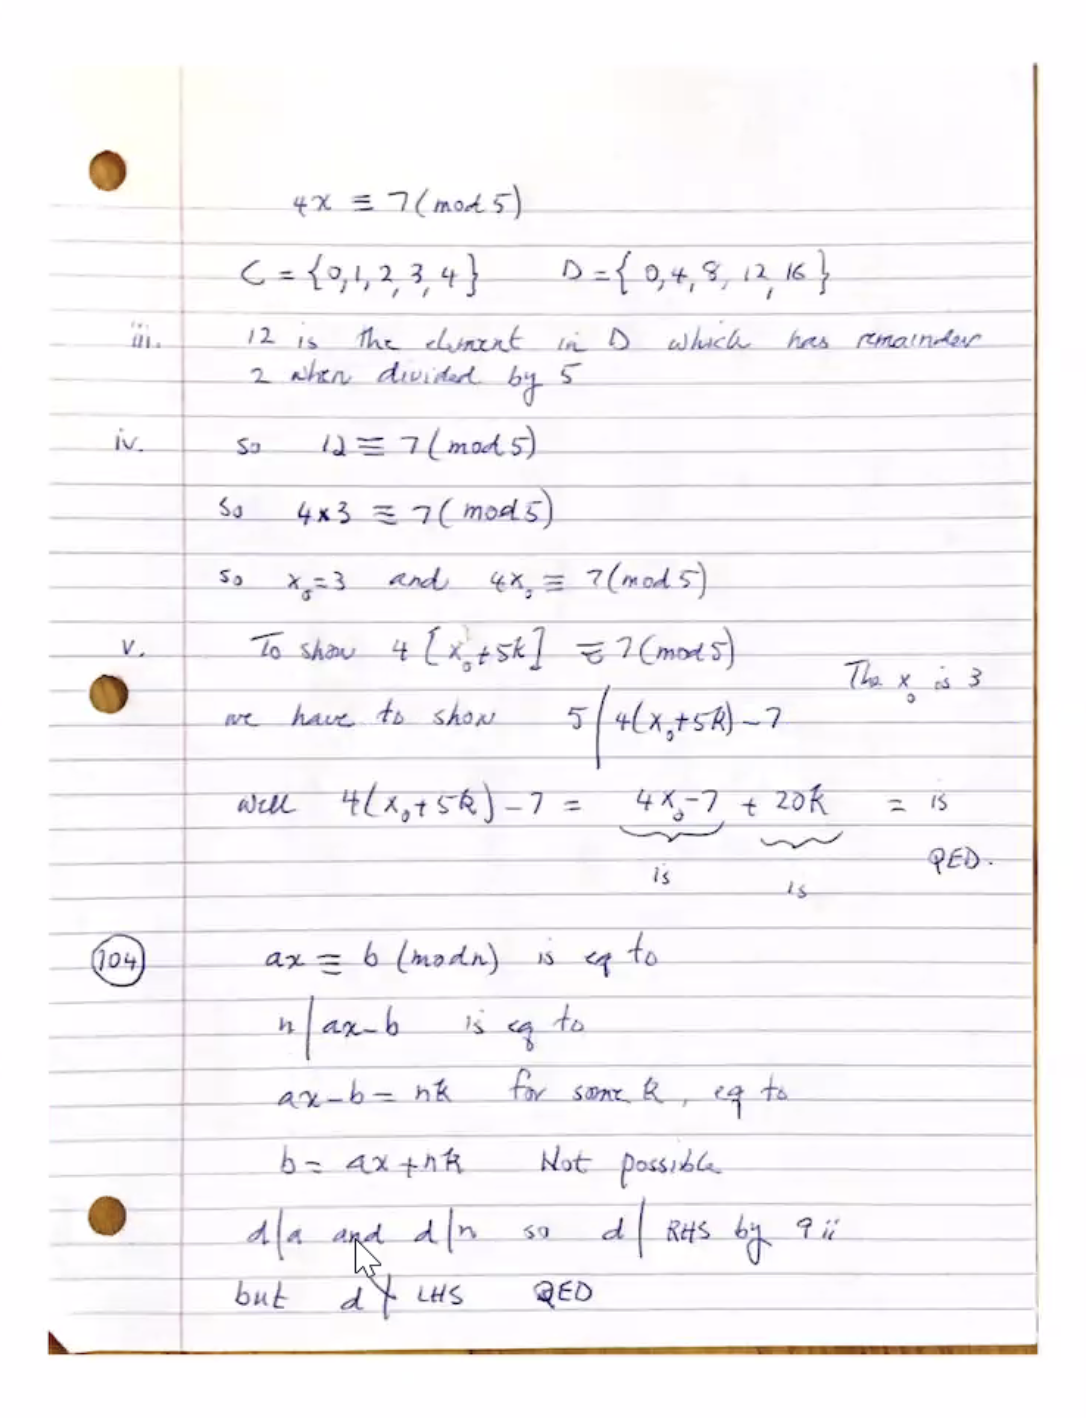 4x ≡ 7(mod 5)
C = {0,1,2,3,4} D = {0,4,8,12,16}
iii. 12 is the element in D which has remainder
2 when divided by 5
iv. so 12 ≡ 7(mod 5)
So 4×3 ≡ 7(mod 5)
so x₀=3 and 4x₀ ≡ 7(mod 5)
v. To show 4[x₀+5k] ≡ 7(mod 5)
The x₀ is 3
we have to show 5|4(x₀+5k)-7
well 4(x₀+5k)-7 = 4x₀-7 + 20k = is
is is QED.
104 ax ≡ b (mod n) is eq to
n|ax-b is eq to
ax-b = nk for some k, eq to
b = ax+nk Not possible
d|a and d|n so d|RHS by 9 ii
but d∤LHS QED